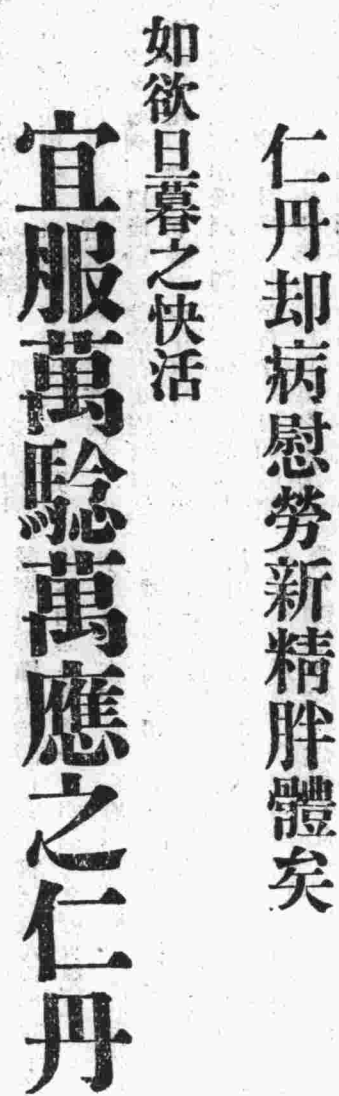 仁丹却病慰勞新精胖體矣
如欲旦暮之快活
宜服萬騐萬應之仁丹